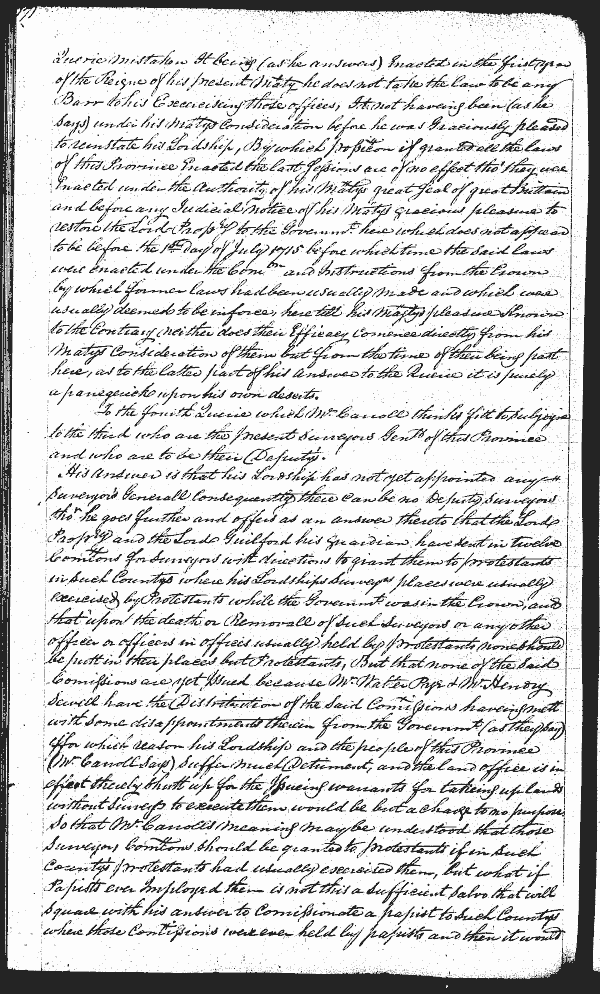 Querie mistaken It being (as he answers) Enacted in the first year
of the Reigne of his present Maty he does not take the Law to be any
Barr to his Excercising those offices, It not haveing been (as he
Says) under his Matys Consideration before he was Graciously pleased
to reinstate his Lordship, By which position if granted all the Laws
of this Province Enacted the last Sessions are of no effect tho' they were
Enacted under the Authority of his Matys great Seal of great Brittain
and before any Judicial Notice of his Matys gracious pleasure to
restore the Lord Propry to the Governmt. here which does not appear
to be before the 1st Day of July 1715 before which time the said Laws
were enacted under the Comn and instructions from the Crown
by which former Laws had been usually made and which were
usually deemed to be in force, here till his Matys pleasure Known
to the Contrary neither does their Efficacy Comence directly from his
Matys Consideration of them but from the time of their being past
here, as to the latter part of his answer to the Querie it is purely
a panegerick upon his own deserts.
To the fourth Querie which Mr. Carroll thinks fit to Subjoyn
to the third who are the present Surveyors Genll of this Province
and who are to be their Deputys.
His answer is that his Lordship has not yet appointed any
Surveyors Generall Consequently there can be no Deputy Surveyors
tho' he goes further and offers as an answer thereto that the Lord
Propry and the Lord Guilford his Guardian have sent in twelve
Comitons for Surveyors with directions to grant them to protestants
in Such Countys where his Lordships Surveyrs places were usually
exercised by Protestants while the Governmt was in the Crown, and
that upon the death or Removall of Such Surveyors or any other
officer or officers in offices usually held by Protestants none should
be putt in their places but Protestants, But that none of the Said
Comissions are yet Issued because Mr. Walter Pye & Mr. Henry
Sewell have the Distribution of the Said Comissions haveing mett
with Some disappointments therein from the Governmt (as they say)
ffor which reason his Lordship and the people of this Province
(Mr. Carroll Says) Suffer much Detriment, and the land office is in
effect thereby Shutt up for the Issueing warrants for takeing up lands
without Surveys to execute them would be but a charge to no purpose
So that Mr. Carrolls meaning may be understood that those
Surveyors Comitons Should be granted to protestants if in Such
Countys protestants had usually excercised them, but what if
Papists ever Imployed them is not this a Sufficient Salvo that will
Square with his answer to Comissionate a papist to Such Countys
where those Comissions were ever held by papists and then it would